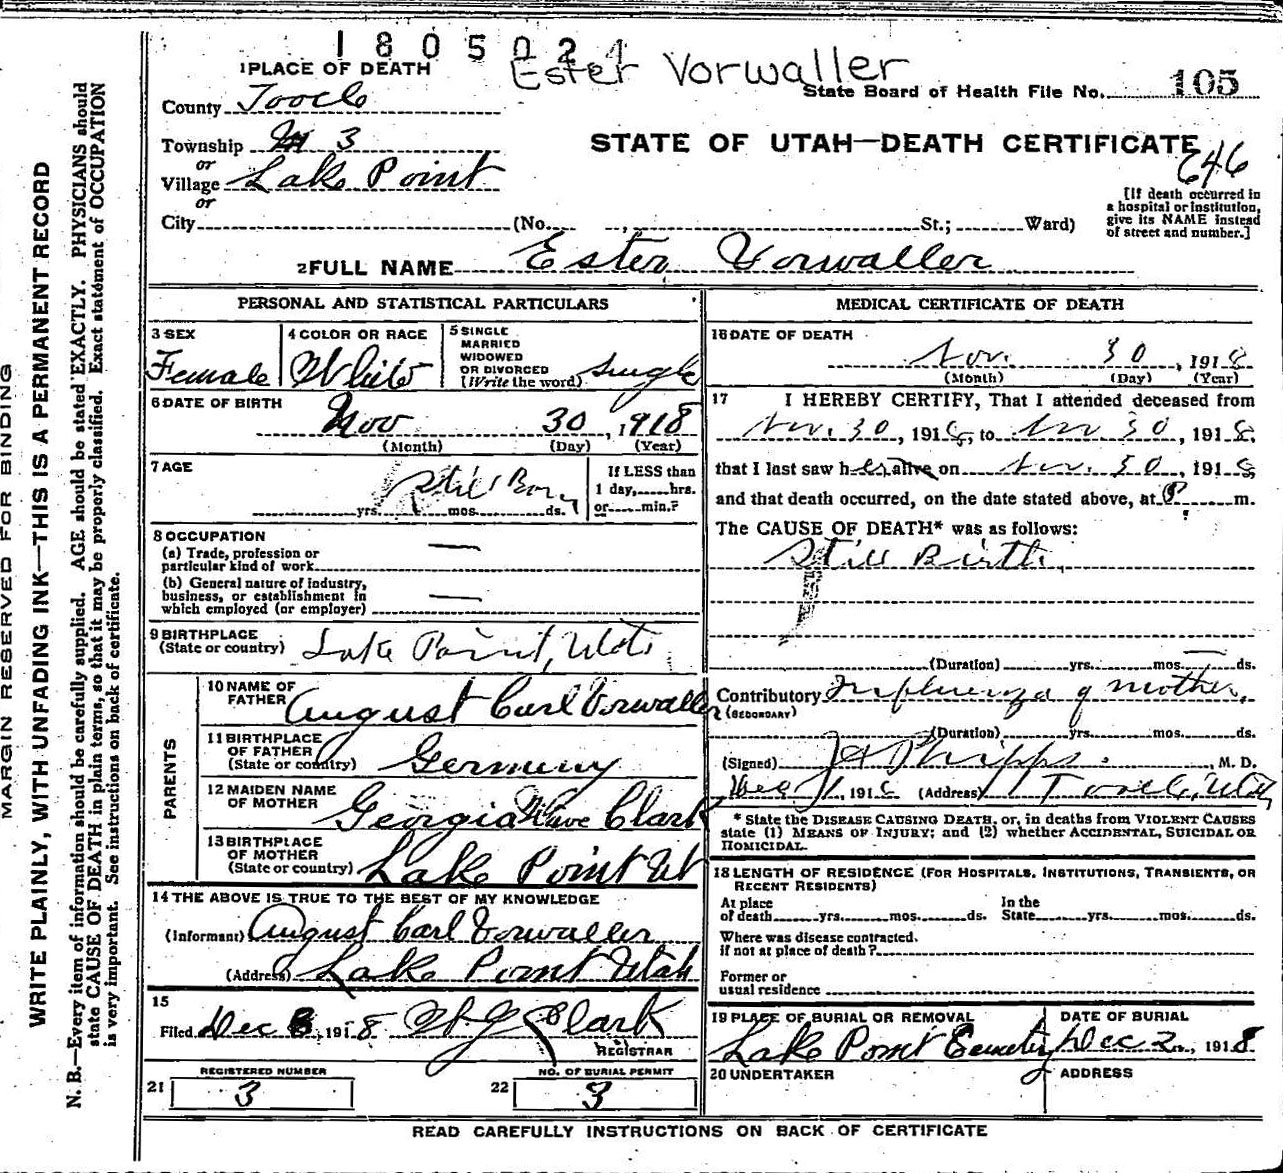 1805021
Ester Vorwaller
1 PLACE OF DEATH
State Board of Health File No. 105
County Tooele
STATE OF UTAH—DEATH CERTIFICATE
646
Township 3
or
Village Lake Point
or
City (No. , St.; Ward)
[If death occurred in
a hospital or institution,
give its NAME instead
of street and number.]
2 FULL NAME Ester Vorwaller
PERSONAL AND STATISTICAL PARTICULARS
3 SEX
Female
4 COLOR OR RACE
White
5 SINGLE
MARRIED
WIDOWED
OR DIVORCED
(Write the word) Single
6 DATE OF BIRTH
Nov 30, 1918
(Month) (Day) (Year)
7 AGE
Still Born
yrs. mos. ds.
If LESS than
1 day, hrs.
or min.?
8 OCCUPATION
(a) Trade, profession or
particular kind of work —
(b) General nature of industry,
business, or establishment in
which employed (or employer) —
9 BIRTHPLACE
(State or country) Lake Point, Utah
PARENTS
10 NAME OF
FATHER August Carl Vorwaller
11 BIRTHPLACE
OF FATHER
(State or country) Germeny
12 MAIDEN NAME
OF MOTHER Georgia Clark
13 BIRTHPLACE
OF MOTHER
(State or country) Lake Point Ut
14 THE ABOVE IS TRUE TO THE BEST OF MY KNOWLEDGE
(Informant) August Carl Vorwaller
(Address) Lake Point Utah
15
Filed Dec 3, 1918 Clark
REGISTRAR
REGISTERED NUMBER
21 3
NO. OF BURIAL PERMIT
22 3
MEDICAL CERTIFICATE OF DEATH
16 DATE OF DEATH
Nov. 30, 1918
(Month) (Day) (Year)
17 I HEREBY CERTIFY, That I attended deceased from
Nov. 30, 1918, to Nov 30, 1918,
that I last saw her alive on Nov. 30, 1918
and that death occurred, on the date stated above, at P m.
The CAUSE OF DEATH* was as follows:
Still Birth
(Duration) yrs. mos. ds.
Contributory Influenza of Mother.
(SECONDARY)
(Duration) yrs. mos. ds.
(Signed) J A Phipps. M. D.
Dec 1, 1918 (Address) Tooele, Utah
* State the DISEASE CAUSING DEATH, or, in deaths from VIOLENT CAUSES
state (1) MEANS OF INJURY; and (2) whether ACCIDENTAL, SUICIDAL OR
HOMICIDAL.
18 LENGTH OF RESIDENCE (FOR HOSPITALS, INSTITUTIONS, TRANSIENTS, OR
RECENT RESIDENTS)
At place
of death yrs. mos. ds.
In the
State yrs. mos. ds.
Where was disease contracted,
if not at place of death?
Former or
usual residence
19 PLACE OF BURIAL OR REMOVAL
Lake Point Cemetery
DATE OF BURIAL
Dec 2, 1918
20 UNDERTAKER
ADDRESS
READ CAREFULLY INSTRUCTIONS ON BACK OF CERTIFICATE
MARGIN RESERVED FOR BINDING
WRITE PLAINLY, WITH UNFADING INK—THIS IS A PERMANENT RECORD
N. B.—Every item of information should be carefully supplied. AGE should be stated EXACTLY. PHYSICIANS should
state CAUSE OF DEATH in plain terms, so that it may be properly classified. Exact statement of OCCUPATION
is very important. See instructions on back of certificate.